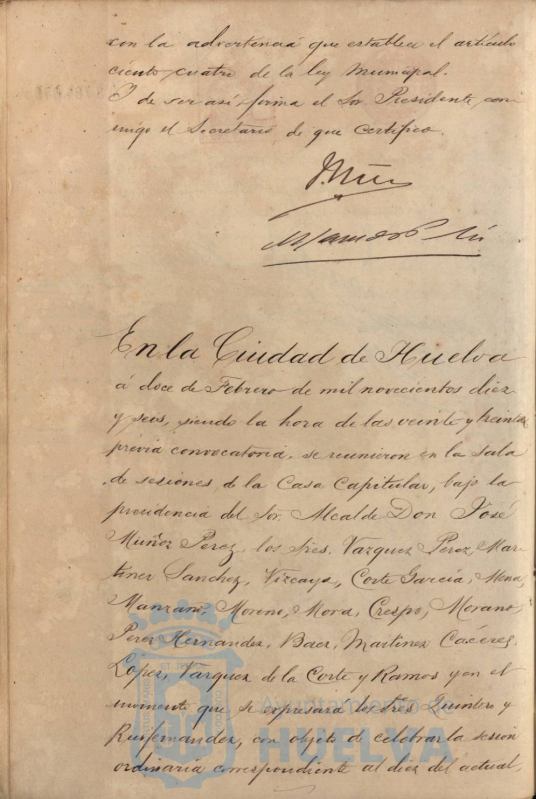 con la advertencia que establece el artículo
ciento cuatro de la ley Municipal.
Y de ser así firma el Sor. Presidente, con-
migo el Secretario de que certifico.
En la Ciudad de Huelva
á doce de Febrero de mil novecientos diez
y seis, siendo la hora de las veinte y treinta
previa convocatoria, se reunieron en la sala
de sesiones de la Casa Capitular, bajo la
presidencia del Sor. Alcalde Don José
Muñoz Perez, los Sres. Vazquez Perez, Mar-
tinez Sanchez, Vizcaya, Corte García, Mena,
Manzano, Moreno, Mora, Crespo, Morano,
Perez Hernandez, Baez, Martinez Cáceres,
Lopez, Vazquez de la Corte y Ramos y en el
momento que se expresará los Sres Quintero y
Ruifernandez, con objeto de celebrar la sesion
ordinaria correspondiente al diez del actual,
Ayuntamiento de
HUELVA